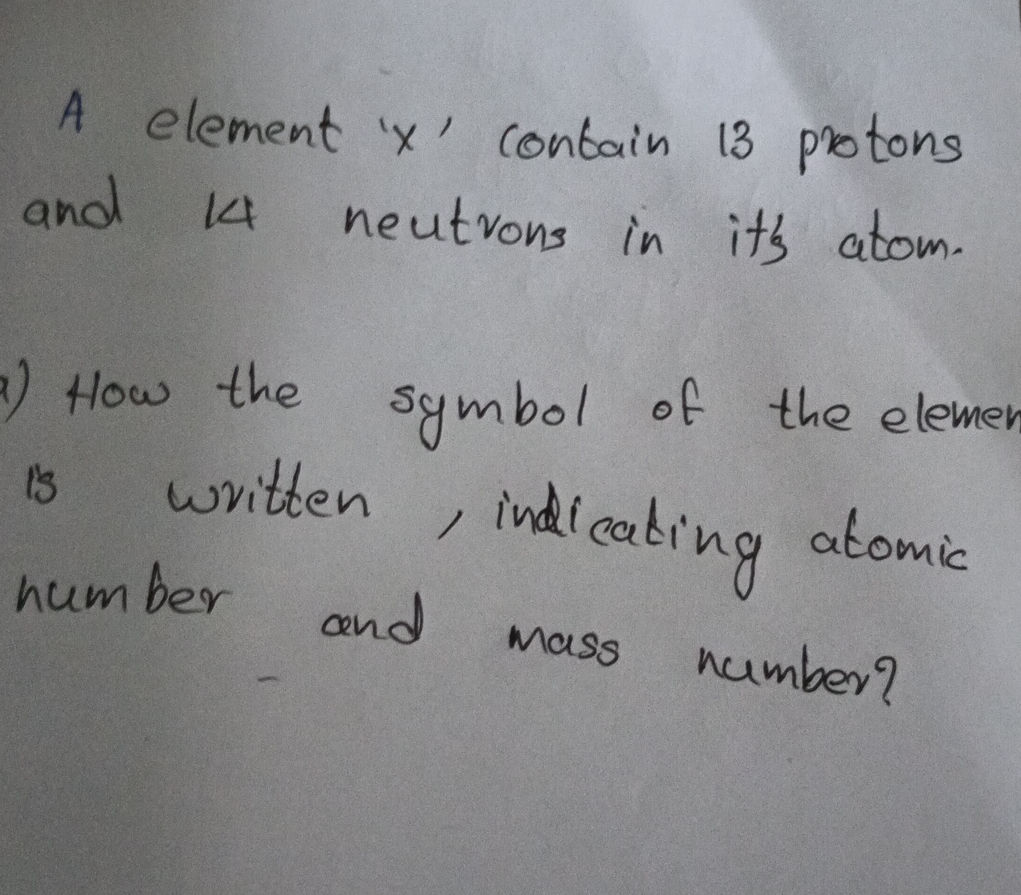 A element 'x' contain 13 protons
and 14 neutrons in it's atom.
a) How the symbol of the elemen
is written, indicating atomic
number and mass number?